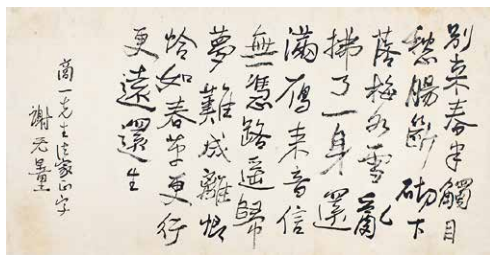 別来春半觸目
愁腸斷砌下
落梅如雪亂
拂了一身還
滿鴈来音信
無憑路遥歸
夢難成離恨
恰如春草更行
更遠還生
一先生法家正字
謝无量